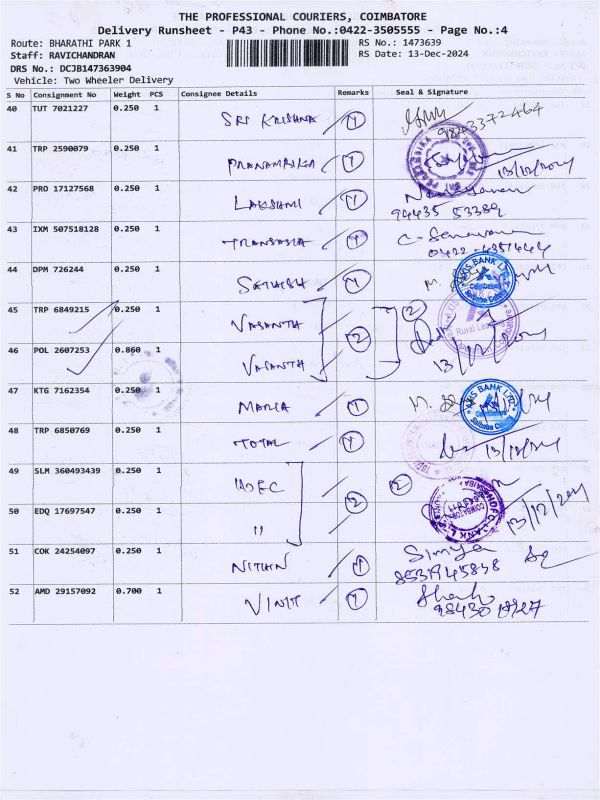 THE PROFESSIONAL COURIERS, COIMBATORE
Delivery Runsheet - P43 - Phone No.:0422-3505555 - Page No.:4
Route: BHARATHI PARK 1 RS No.: 1473639
Staff: RAVICHANDRAN RS Date: 13-Dec-2024
DRS No.: DCJB147363904
Vehicle: Two Wheeler Delivery
S No Consignment No Weight PCS Consignee Details Remarks Seal & Signature
40 TUT 7021227 0.250 1 SRI KRISHNA 1
9843372464
41 TRP 2590079 0.250 1 PRANAMBIKA 1 13/12/2024
42 PRO 17127568 0.250 1 LAKSHMI 1 Narayanan
94435 53389
43 IXM 507518128 0.250 1 TRANSASIA 1 C. Saravanan
0422-4351444
44 DPM 726244 0.250 1 SATHISH 1 AXIS BANK LTD.
45 TRP 6849215 0.250 1 VASANTH 2 2
46 POL 2607253 0.860 1 VASANTH 13/12/2024
47 KTG 7162354 0.250 1 MARIA 1 AXIS BANK LTD.
48 TRP 6850769 0.250 1 TOTAL 1 13/12/24
49 SLM 360493439 0.250 1 HDFC 2 2
50 EDQ 17697547 0.250 1 " HDFC BANK 13/12/2024
51 COK 24254097 0.250 1 NITHIN 1 Simiya
8531945838
52 AMD 29157092 0.700 1 VINIT 1